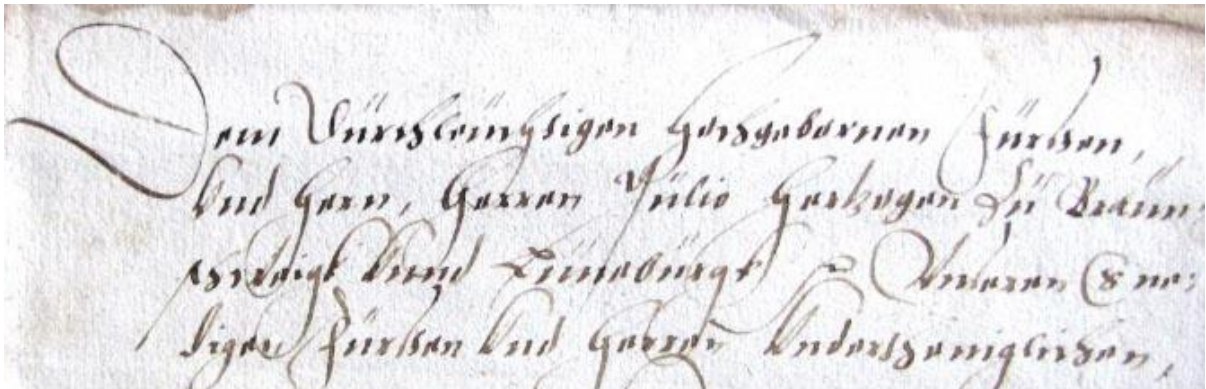 Dem Durchleuchtigen Hochgebornen Fürsten,
Vnd Hern, Herren Julio Hertzogen Zu Braun-
schweigk Vnnd Lüneburgk Vnseren Gne-
digen Fürsten Vnd Herren Vndertheniglichen,